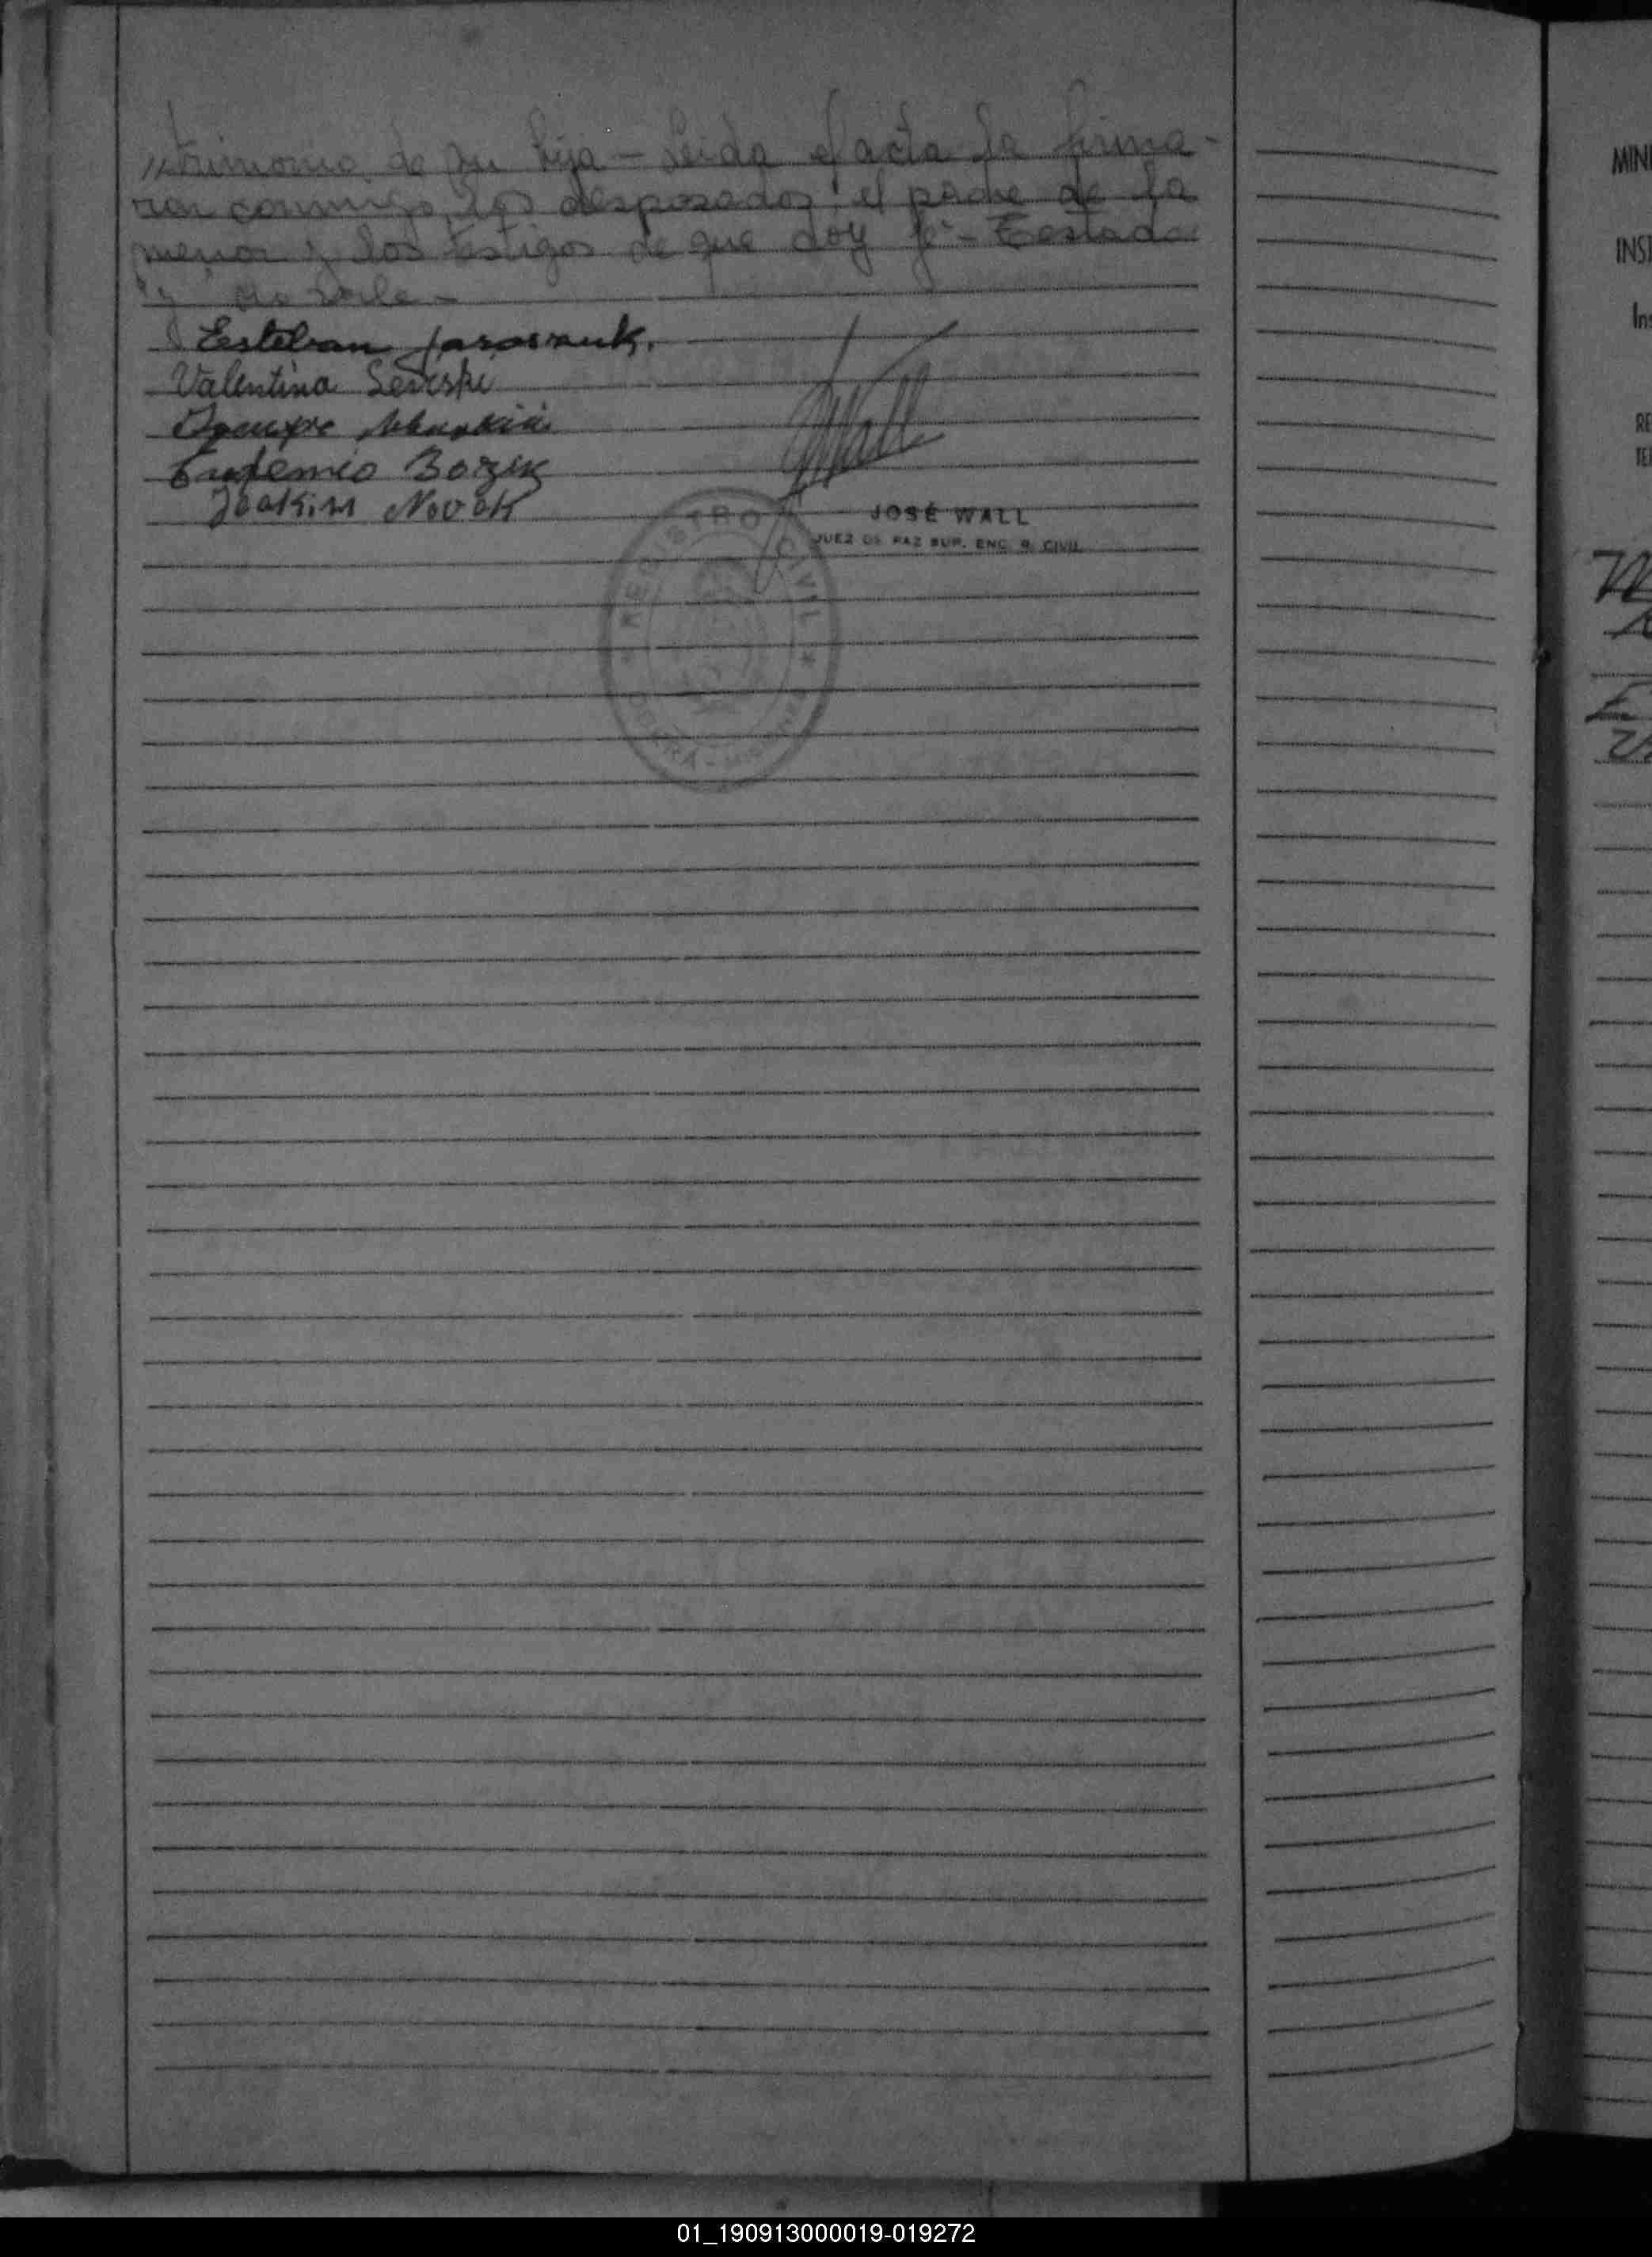 //trimonio de su hija - Leida el acta la firma-
ron conmigo, los desposados: el padre de la
menor y los testigos de que doy fé - Testado:
"y no vale -
Esteban Jaroszuk.
Valentina
Eufemio Bozek
Joakim Novak
JOSÉ WALL
JUEZ DE PAZ SUP. ENC. R. CIVIL
REGISTRO CIVIL
OBERA - MISIONES
MIN
INST
Ins
RE
TE
01_190913000019-019272